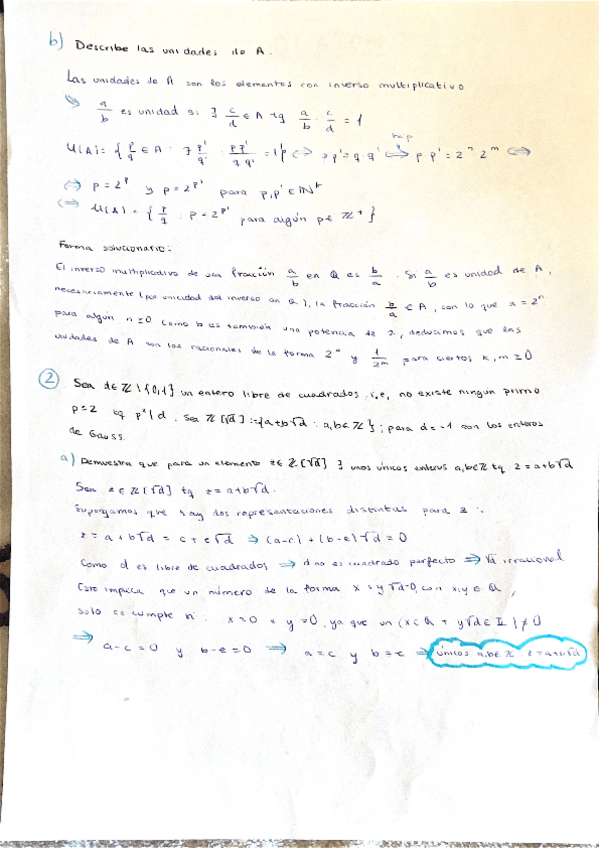 b) Describe las unidades de A.
Las unidades de A son los elementos con inverso multiplicativo
a/b es unidad si ∃ c/d ∈ A tq a/b · c/d = 1
U(A) = { p/q ∈ A : ∃ p'/q' : pp'/qq' = 1 } ⇔ pp' = qq' ⇔ p·p' = 2ⁿ 2ᵐ ⇔
⇔ p = 2^p y p = 2^p' para p, p' ∈ ℕ⁺
⇔ U(A) = { p/q : p = 2^p' para algún p ∈ ℤ⁺ }
Forma solucionario:
El inverso multiplicativo de una fracción a/b en ℚ es b/a. Si a/b es unidad de A,
necesariamente (por unicidad del inverso en ℚ), la fracción b/a ∈ A, con lo que a = 2ⁿ
para algún n ≥ 0 como b es también una potencia de 2, deducimos que las
unidades de A son los racionales de la forma 2ⁿ y 1/2ᵐ para ciertos n, m ≥ 0
② Sea d ∈ ℤ \ {0,1} un entero libre de cuadrados, i,e, no existe ningún primo
p=2 tq p²|d. Sea ℤ[√d] := {a+b√d : a,b ∈ ℤ}; para d=-1 son los enteros
de Gauss.
a) Demuestra que para un elemento z ∈ ℤ[√d] ∃ unos únicos enteros a,b∈ℤ tq z = a+b√d
Sea z ∈ ℤ[√d] tq z = a+b√d.
Supongamos que hay dos representaciones distintas para z:
z = a + b√d = c + e√d ⇒ (a-c) + (b-e)√d = 0
Como d es libre de cuadrados ⇒ d no es cuadrado perfecto ⇒ √d irracional
Esto implica que un número de la forma x + y√d=0, con x,y ∈ ℚ,
solo se cumple si x=0 e y=0, ya que un (x∈ℚ + y√d∈𝕀) ≠ 0
⇒ a-c=0 y b-e=0 ⇒ a=c y b=e ⇒ únicos a,b∈ℤ z=a+b√d